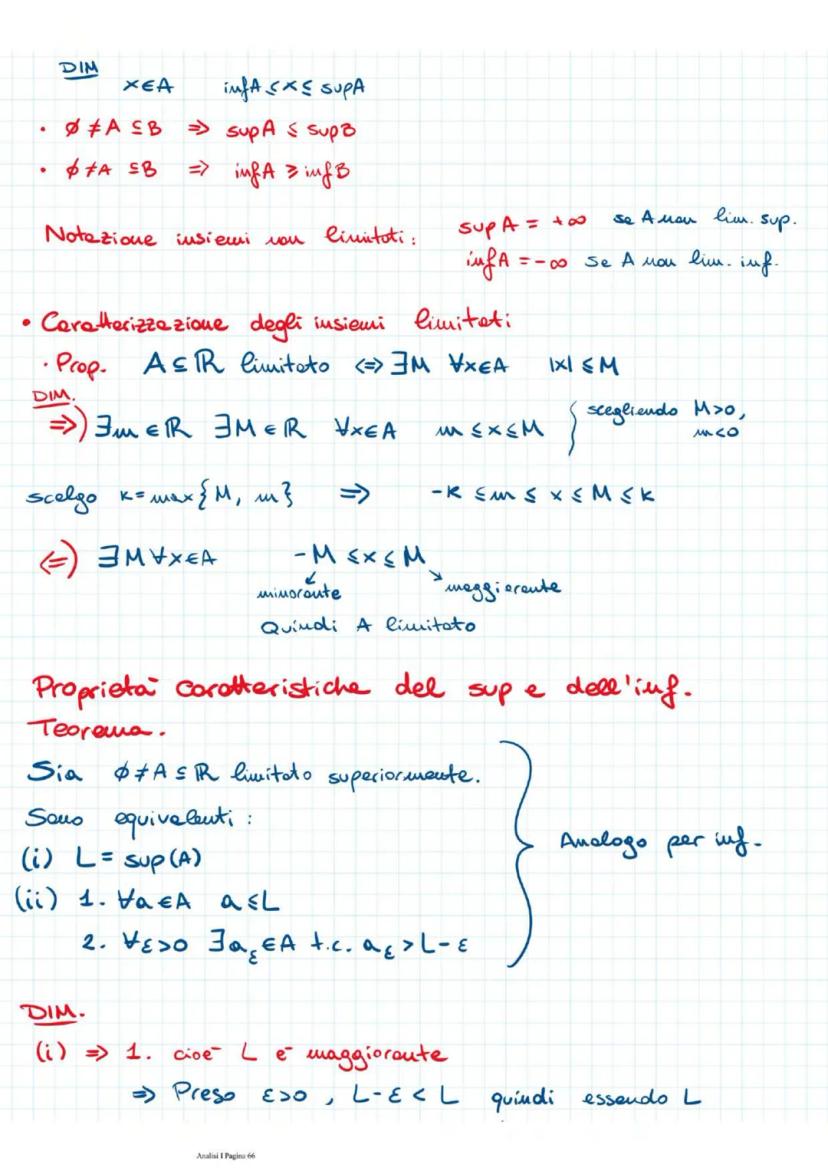 DIM
x∈A inf A ≤ x ≤ sup A
• ∅ ≠ A ⊆ B ⇒ sup A ≤ sup B
• ∅ ≠ A ⊆ B ⇒ inf A ≥ inf B
Notazione insiemi non limitati: sup A = +∞ se A non lim. sup.
inf A = -∞ se A non lim. inf.
• Caratterizzazione degli insiemi limitati
· Prop. A ⊆ ℝ limitato <=> ∃M ∀x∈A |x| ≤ M
DIM.
⇒) ∃m ∈ ℝ ∃M ∈ ℝ ∀x∈A m ≤ x ≤ M { scegliendo M>0,
m<0
scelgo k = max{M, m} ⇒ -k ≤ m ≤ x ≤ M ≤ k
<=) ∃M ∀x∈A -M ≤ x ≤ M
minorante maggiorante
Quindi A limitato
Proprietà caratteristiche del sup e dell'inf.
Teorema.
Sia ∅ ≠ A ⊆ ℝ limitato superiormente.
Sono equivalenti :
(i) L = sup(A)
(ii) 1. ∀a ∈ A a ≤ L
2. ∀ε>0 ∃a_ε ∈ A t.c. a_ε > L-ε
} Analogo per inf.
DIM.
(i) ⇒ 1. cioè L è maggiorante
⇒ Preso ε>0 , L-ε < L quindi essendo L
Analisi I Pagina 66